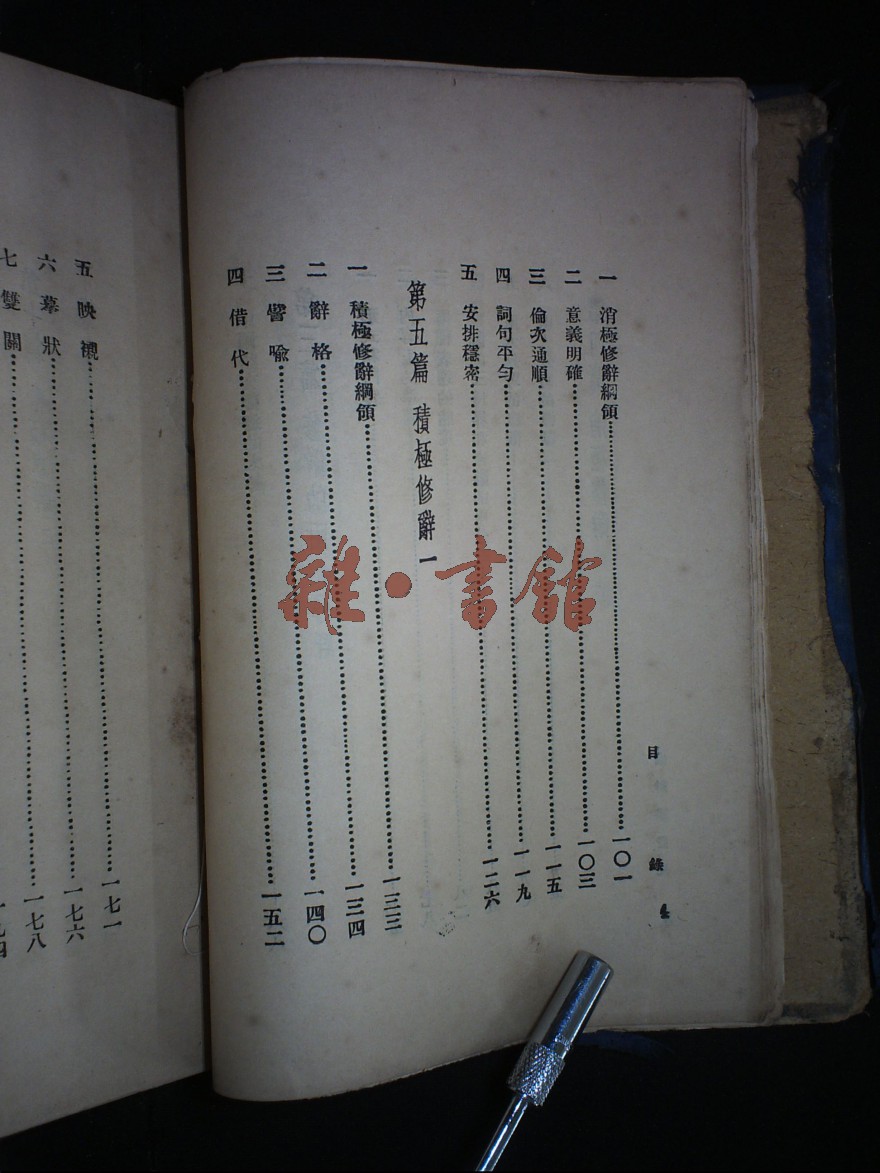 目錄 4
一 消極修辭綱領 一〇一
二 意義明確 一〇三
三 倫次通順 一一五
四 詞句平勻 一一九
五 安排穩密 一二六
第五篇 積極修辭一
一 積極修辭綱領 一三三
二 辭格 一三四
三 譬喩 一四〇
四 借代 一五二
五 映襯 一七一
六 摹狀 一七六
七 雙關 一七八
雜·書館